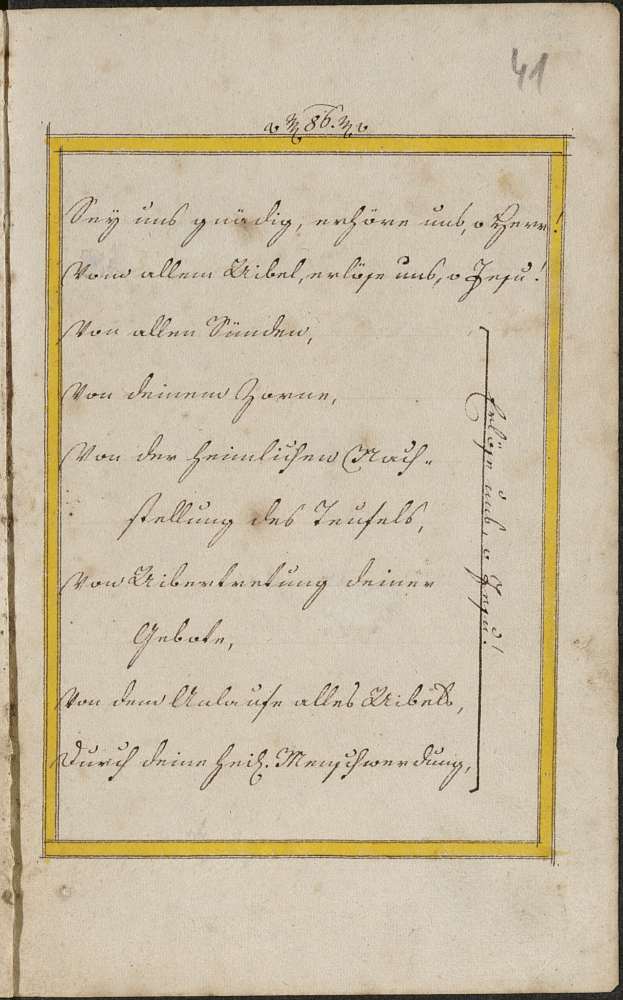 41
86.
Sey uns gnädig, erhöre uns, o Herr!
Vom allem Uibel, erlöse uns, o Jesu!
Von allen Sünden,
Von deinem Zorne,
Von der heimlichen Nach-
stellung des Teufels,
Von Uibertretung deiner
Gebote,
Von dem Anlaufe alles Uibels,
Durch deine heil. Menschwerdung,
Erlöse uns, o Jesu!